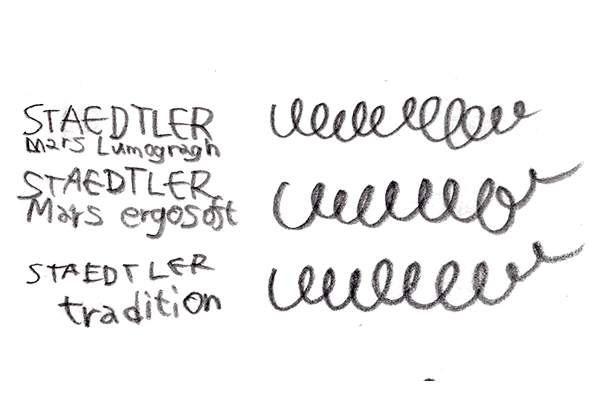 STAEDTLER
Mars Lumogragh
STAEDTLER
Mars ergosoft
STAEDTLER
tradition